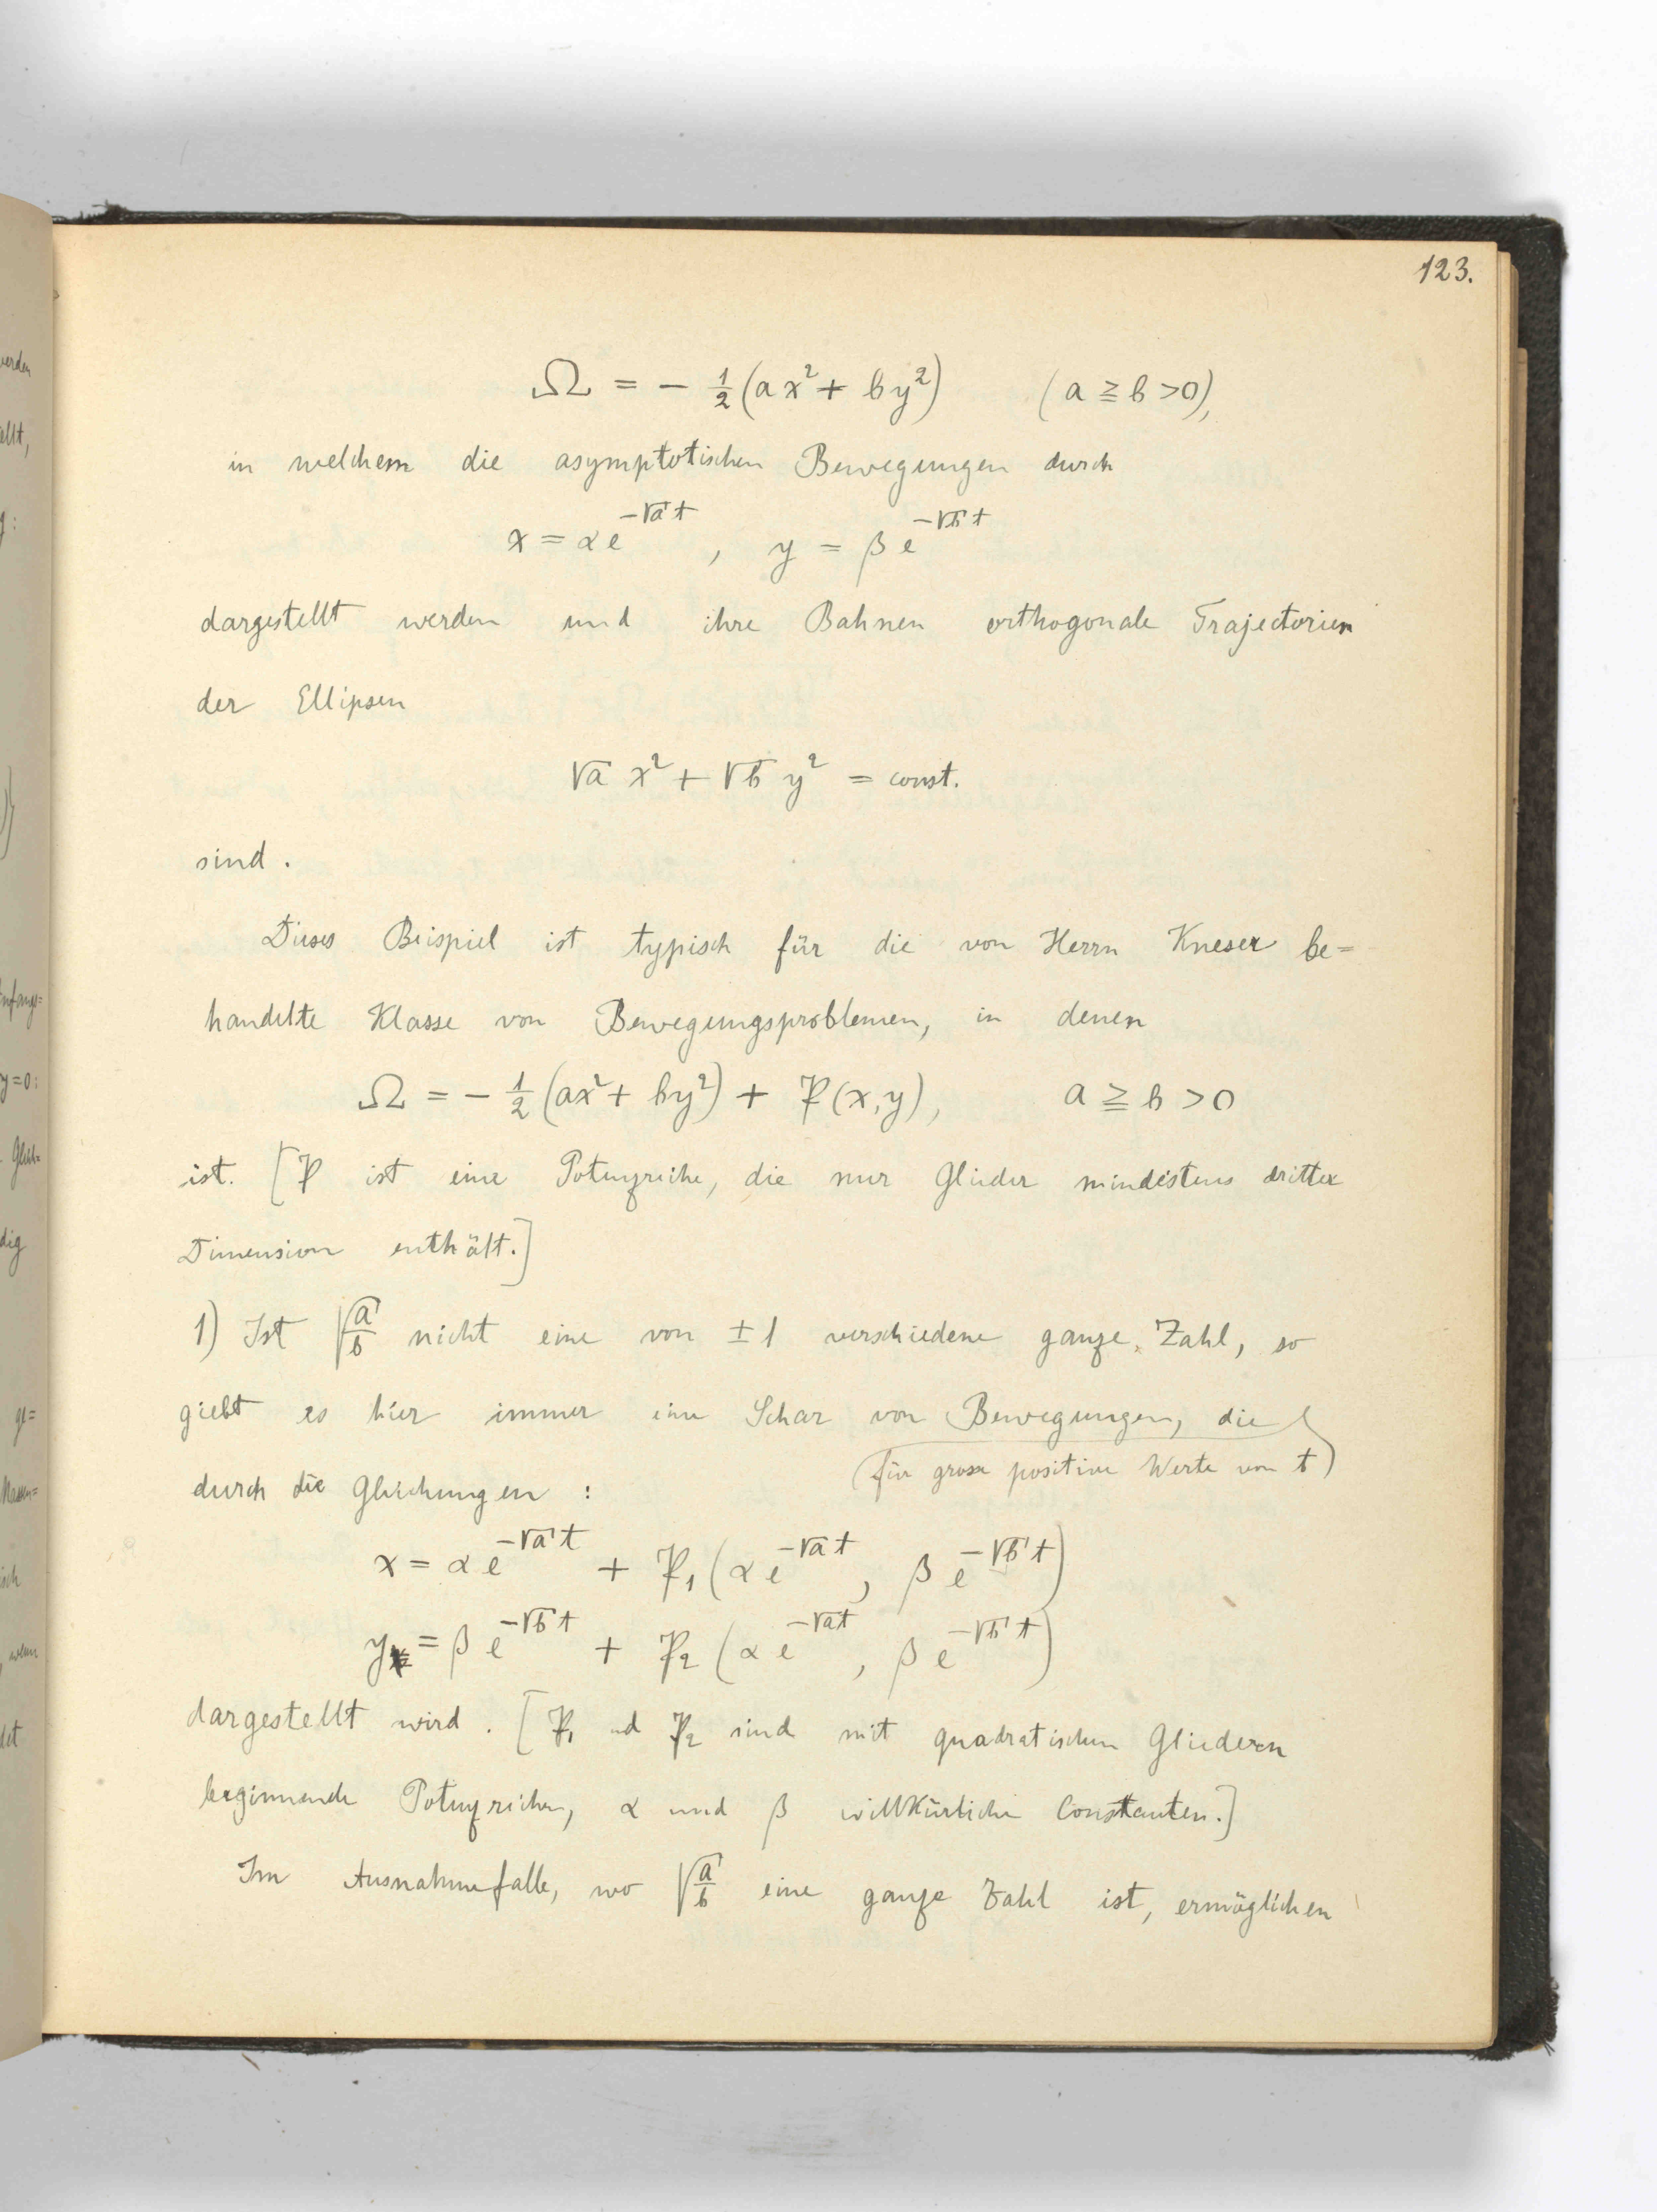 123.
Ω = − 1/2 (ax² + by²) (a ≧ b > 0),
in welchem die asymptotischen Bewegungen durch
x = αe^{−√a t} , y = βe^{−√b t}
dargestellt werden und ihre Bahnen orthogonale Trajectorien
der Ellipsen
√a x² + √b y² = const.
sind .
Dieses Beispiel ist typisch für die von Herrn Kneser be=
handelte Klasse von Bewegungsproblemen, in denen
Ω = − 1/2 (ax² + by²) + P(x,y), a ≧ b > 0
ist. [P ist eine Potenzreihe, die nur Glieder mindestens dritter
Dimension enthält.]
1) Ist √(a/b) nicht eine von ±1 verschiedene ganze Zahl, so
giebt es hier immer eine Schar von Bewegungen, die
(für grosse positive Werte von t)
durch die Gleichungen :
x = αe^{−√a t} + P₁(αe^{−√a t}, βe^{−√b t})
y = βe^{−√b t} + P₂(αe^{−√a t}, βe^{−√b t})
dargestellt wird . [P₁ und P₂ sind mit quadratischen Gliedern
beginnende Potenzreihen, α und β willkürliche Constanten.]
Im Ausnahmefalle, wo √(a/b) eine ganze Zahl ist, ermöglichen